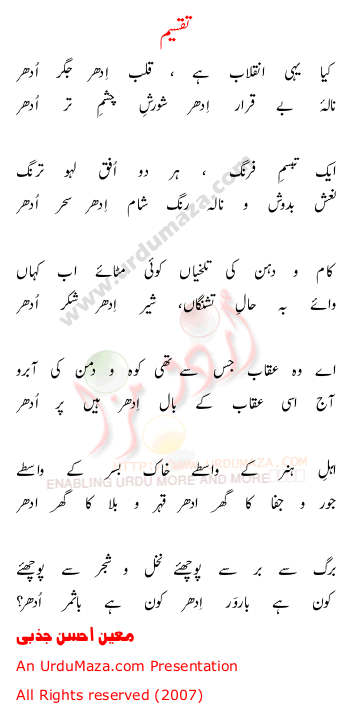 تقسیم
کیا یہی انقلاب ہے ، قلب اِدھر جگر اُدھر
نالۂ بے قرار اِدھر شورشِ چشمِ تر اُدھر
ایک تبسمِ فرنگ ، ہر دو اُفق لہو ترنگ
نعش بدوش و نالہ رنگ شام اِدھر سحر اُدھر
کام و دہن کی تلخیاں کوئی مٹائے اب کہاں
وائے بہ حالِ تشنگاں، شیر اِدھر شکر اُدھر
اے وہ عقاب جس سے تھی کوہ و دمن کی آبرو
آج اسی عقاب کے بال اِدھر ہیں پر اُدھر
اہلِ ہنر کے واسطے خاک بسر کے واسطے
جور و جفا کا گھر ادھر قہر و بلا کا گھر ادھر
برگ سے بر سے پوچھئے نخل و شجر سے پوچھئے
کون ہے باروَر اِدھر کون ہے باثمر اُدھر؟
معین احسن جذبی
An UrduMaza.com Presentation
All Rights reserved (2007)
www.urdumaza.com
اردو مزا
HTTP://WWW.URDUMAZA.COM
ENABLING URDU MORE AND MORE